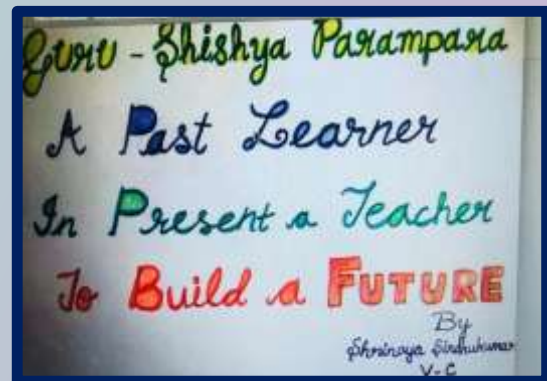 Guru - Shishya Parampara
A Past Learner
In Present a Teacher
To Build a FUTURE
By
Sindhukumar
V-C